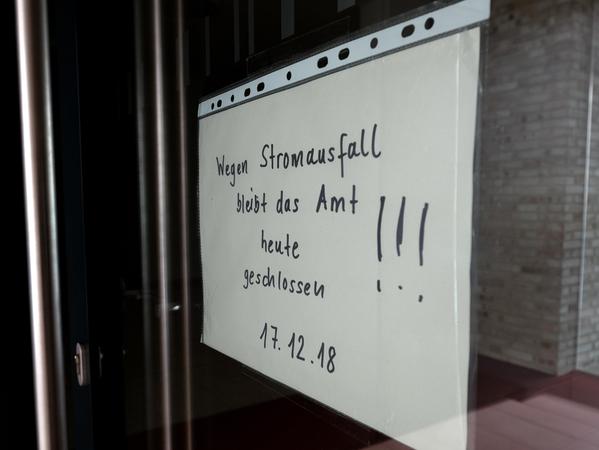 Wegen Stromausfall
bleibt das Amt
heute !!!
geschlossen
17.12.18